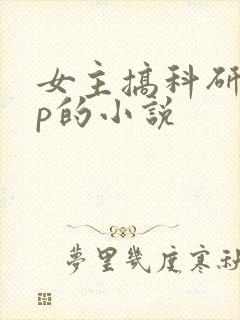 女主搞科研
p的小説
夢里幾度寒秋